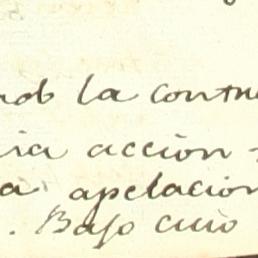 la contra
ria accion
a apelacion
. Bajo cuio